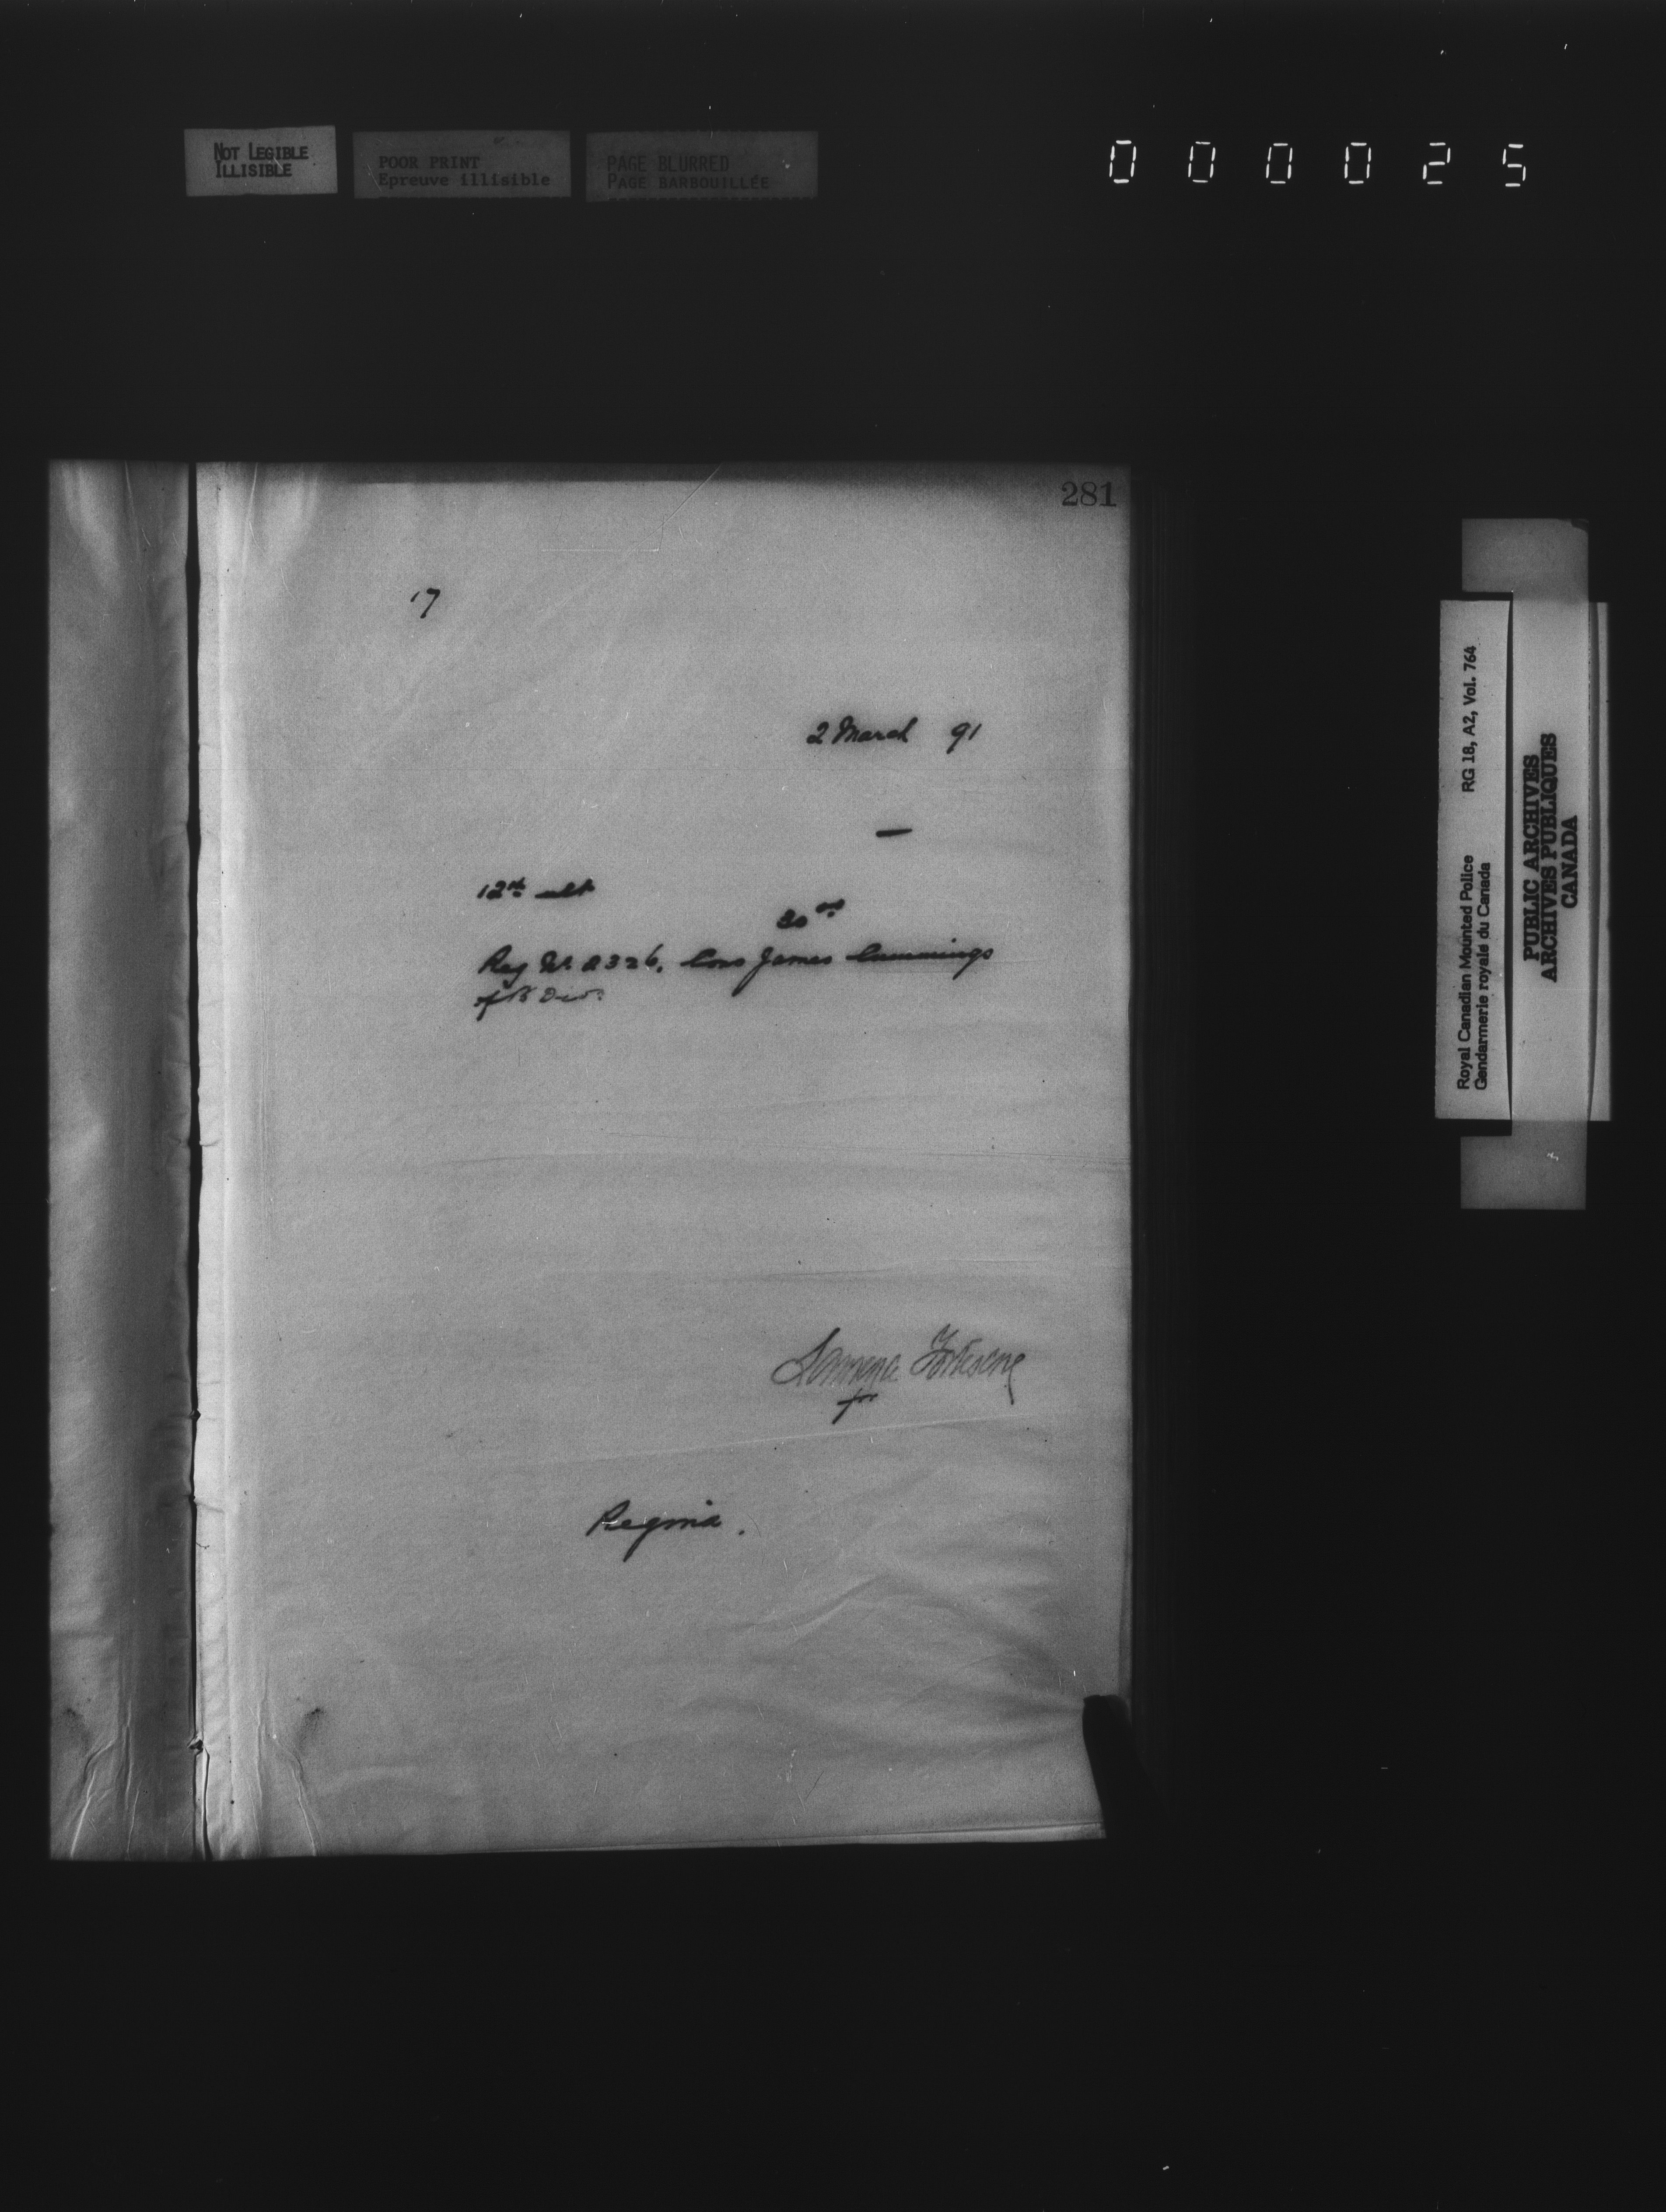 NOT LEGIBLE
ILLISIBLE
POOR PRINT
Epreuve illisible
PAGE BLURRED
PAGE BARBOUILLÉE
000025
281
17
2 March 91
—
12th ult
30 00
Reg No 2326. Cons James Cummings
of B Divn
Lawrence Fortescue
for
Regina.
Royal Canadian Mounted Police RG 18, A2, Vol. 764
Gendarmerie royale du Canada
PUBLIC ARCHIVES
ARCHIVES PUBLIQUES
CANADA